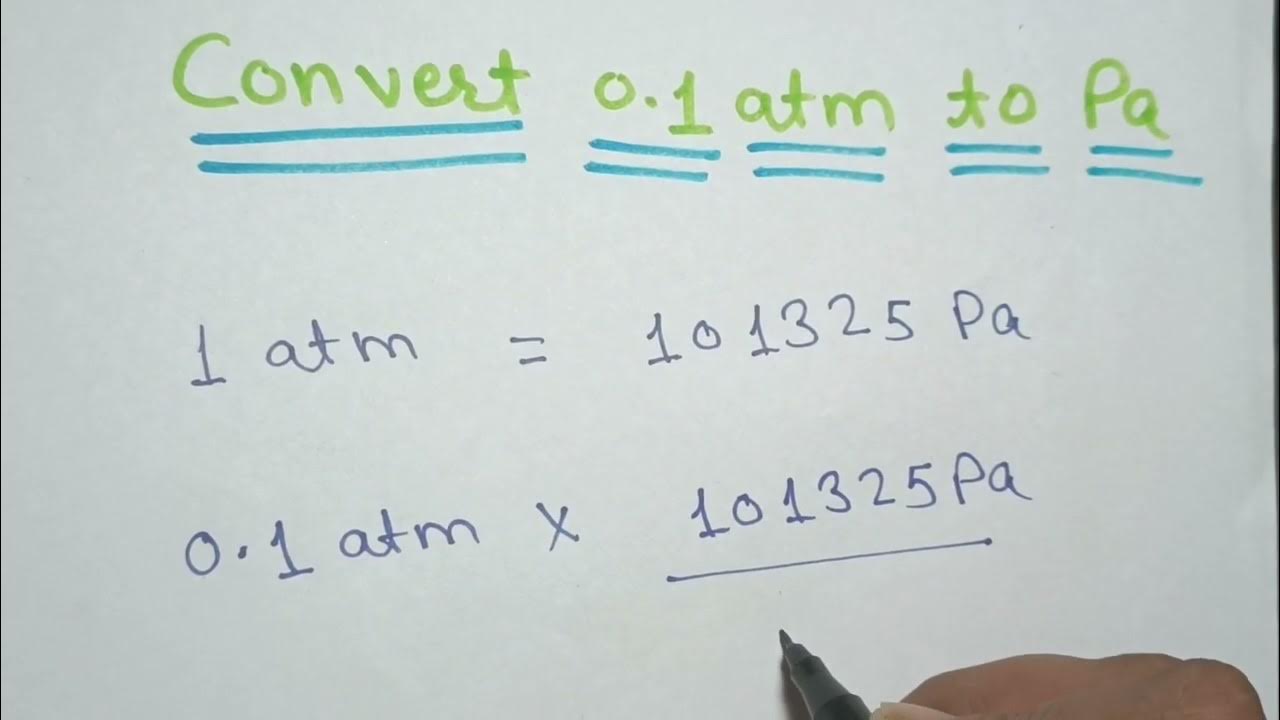 Convert 0.1 atm to Pa
1 atm = 101325 Pa
0.1 atm x 101325 Pa